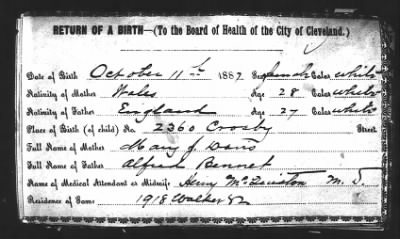 RETURN OF A BIRTH—(To the Board of Health of the City of Cleveland.)
Date of Birth October 11th 1887 Sex female Color white
Nativity of Mother Wales Age 28 Color white
Nativity of Father England Age 27 Color white
Place of Birth (of child) No. 2360 Crosby Street
Full Name of Mother Mary J. Davis
Full Name of Father Alfred Bennet
Name of Medical Attendant or Midwife Henry McQuiston M. D.
Residence of Same 1918 Walker